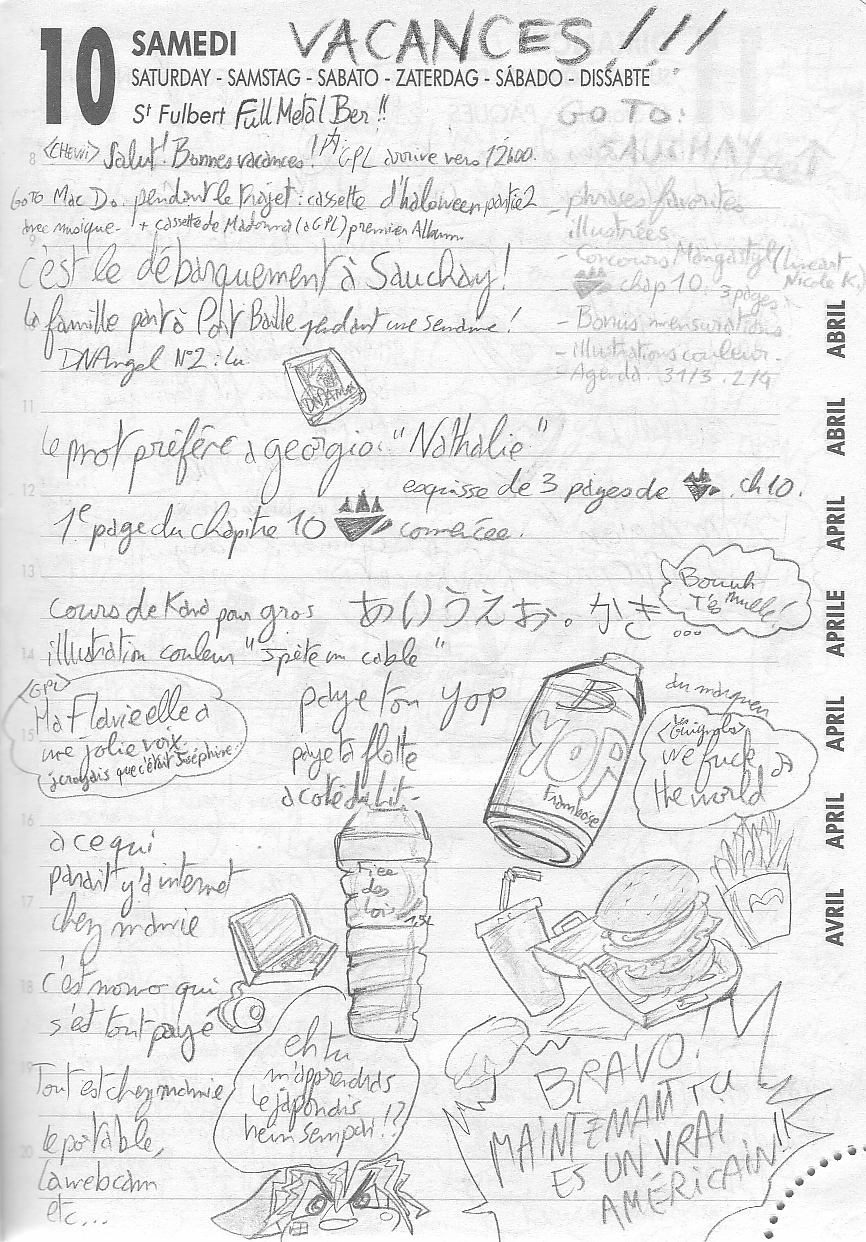 10 SAMEDI
VACANCES!!!
SATURDAY - SAMSTAG - SABATO - ZATERDAG - SÁBADO - DISSABTE
St Fulbert Full Metal Ber!!
GO TO:
8
<CHEWI> Salut! Bonnes vacances! GPL arrive vers 12h00.
GOTO Mac Do. pendant le trajet: cassette d'haloween partie 2
avec musique - + cassette de Madonna (à GPL) premier Album.
- phrases favorites
illustrées.
- Concours Mangastyl (lineart
Nicole K.)
chap 10. 3 pages
- Bonus mensurations
- Illustrations couleur.
- Agenda. 31/3. 2/4
9
c'est le débarquement à Sauchay!
la famille part à Port Baille pendant une semaine!
DNAngel N°2: lu
DNAngel
11
le mot préféré à georgio: "Nathalie"
12
esquisse de 3 pages de ch 10.
1e page du chapitre 10 commencée.
13
cours de Kana pour gros あいうえお。かき
Bouuh
T'es nulle!
14
illustration couleur "Spète un cable"
<GPL>
Ma Flavie elle a
une jolie voix
j'croyais que c'était Joséphine..
15
paye ton yop
paye ta flotte
a coté du lit-
B
YOP
Framboise
<Les Guignols>
we fuck
the world
16
a ce qui
parait y'a internet
chez mamie
17
des
1,5L
c'est momo qui
s'est tout payé
18
eh tu
m'apprendras
le japonais
hein sempai!?
19
Tout est chez mamie
le portable,
la webcam
etc...
20
BRAVO!
MAINTENANT TU
ES UN VRAI
AMÉRICAIN!!
ABRIL
ABRIL
APRIL
APRILE
APRIL
APRIL
AVRIL